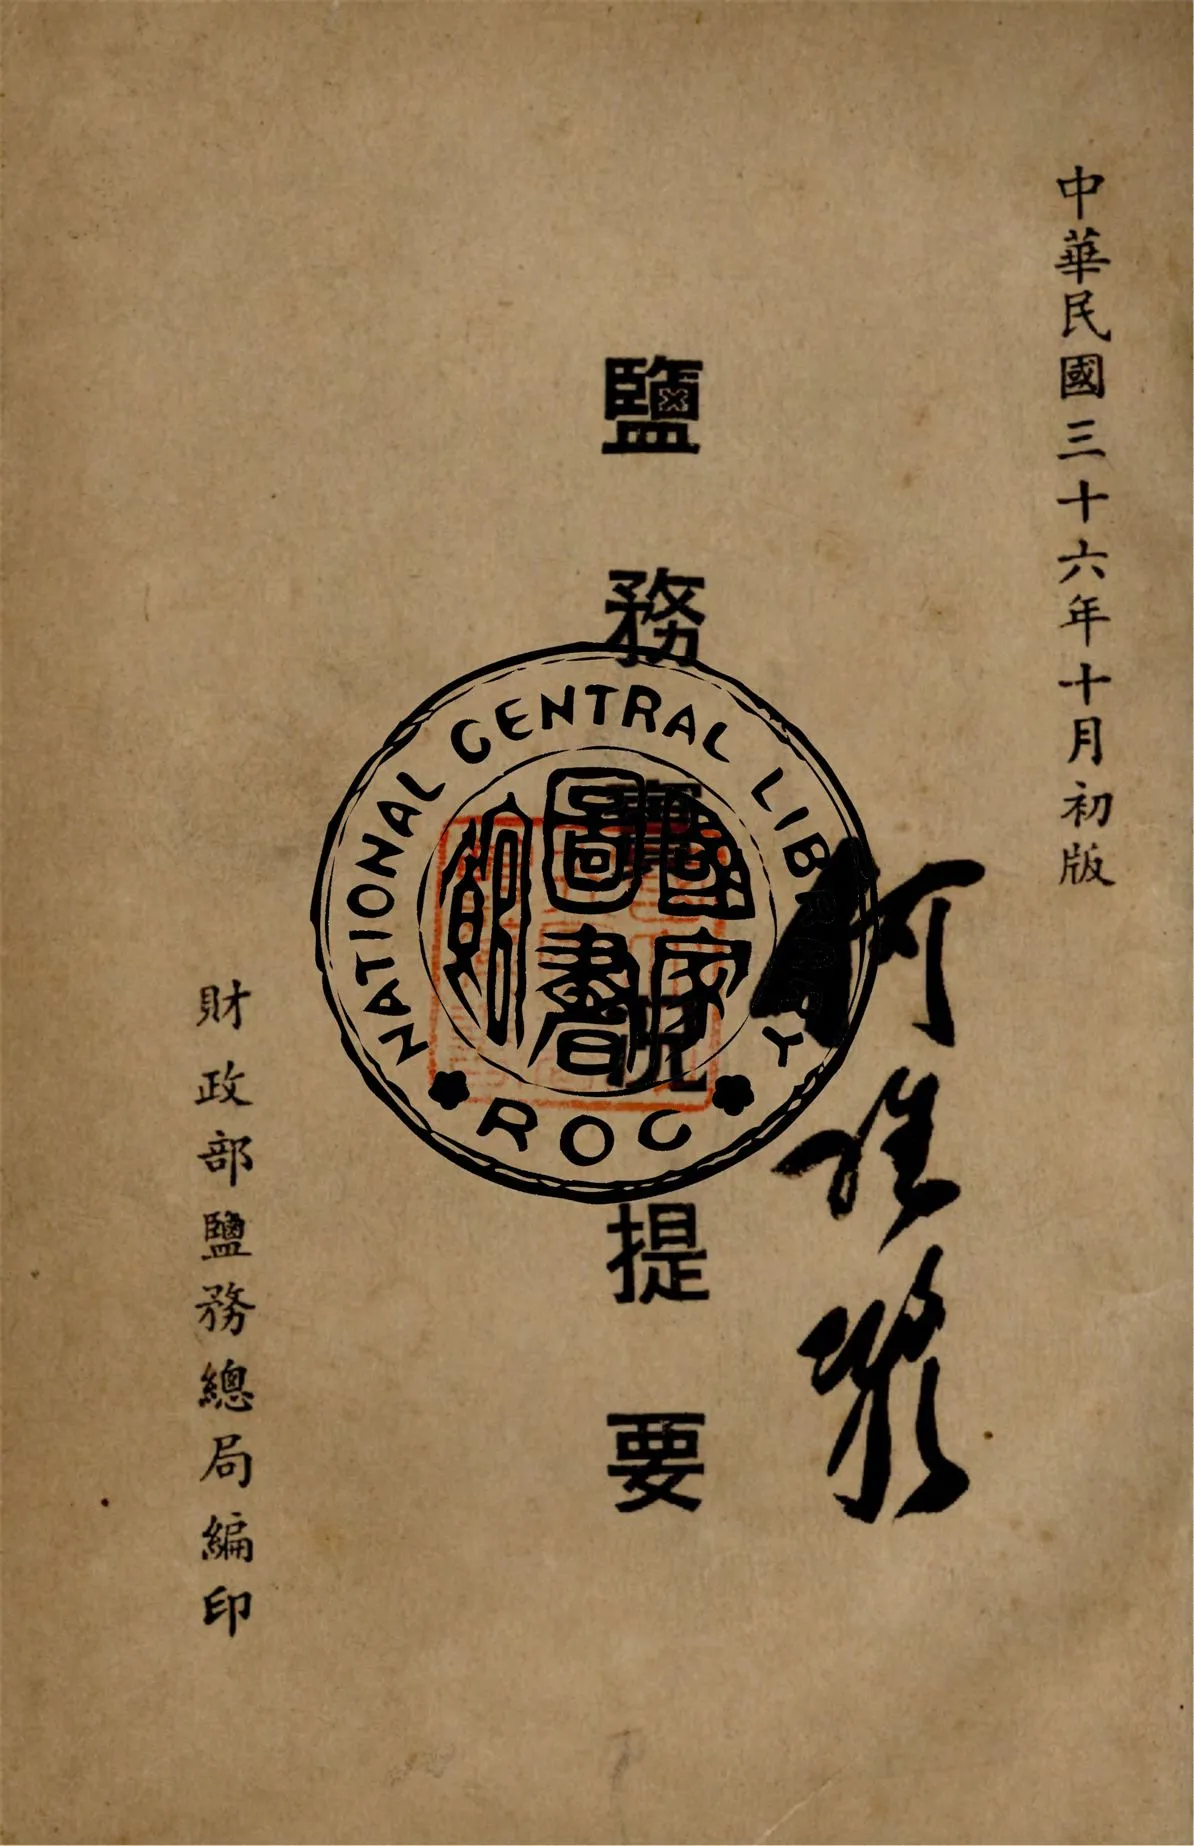 中華民國三十六年十月初版
鹽務實況提要
財政部鹽務總局編印
NATIONAL CENTRAL LIBRARY
ROC
國家圖書館